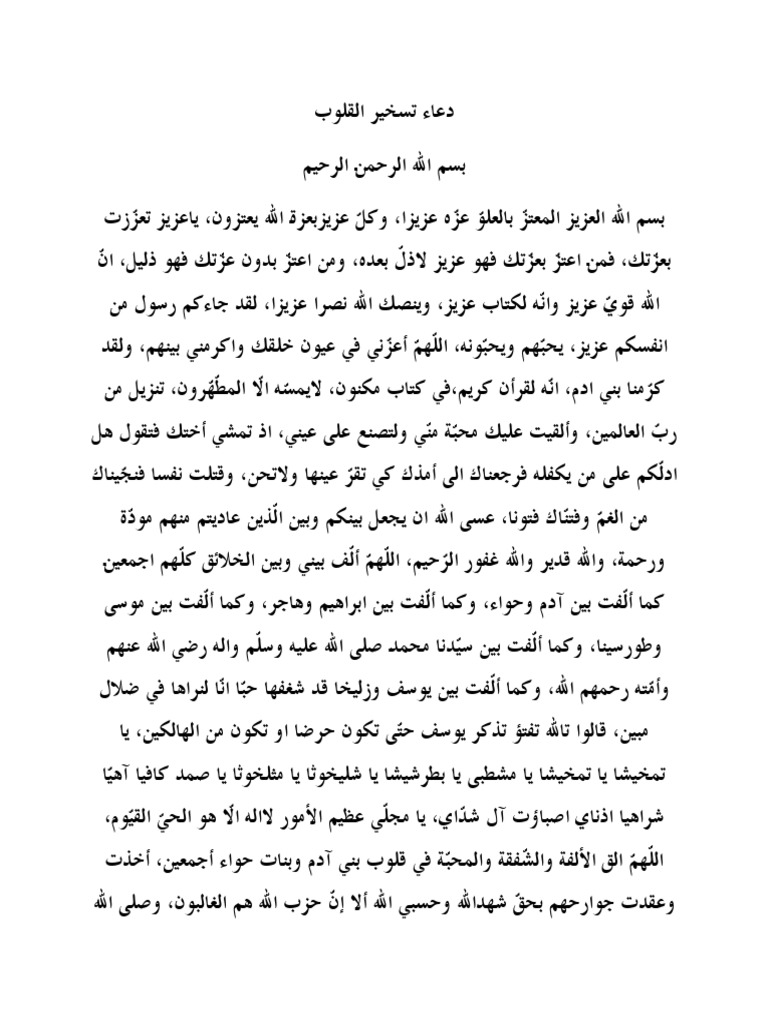 دعاء تسخير القلوب
بسم الله الرحمن الرحيم
بسم الله العزيز المعتزّ بالعلوّ عزّه عزيزا، وكلّ عزيزبعزة الله يعتزون، ياعزيز تعزّزت
بعزّتك، فمن اعتزّ بعزّتك فهو عزيز لاذلّ بعده، ومن اعتزّ بدون عزّتك فهو ذليل، انّ
الله قويّ عزيز وانّه لكتاب عزيز، وينصك الله نصرا عزيزا، لقد جاءكم رسول من
انفسكم عزيز، يحبّهم ويحبّونه، اللّهمّ أعزّني في عيون خلقك واكرمني بينهم، ولقد
كرّمنا بني ادم، انّه لقرأن كريم،في كتاب مكنون، لايمسّه الّا المطّهّرون، تنزيل من
ربّ العالمين، وألقيت عليك محبّة منّي ولتصنع على عيني، اذ تمشي أختك فتقول هل
ادلّكم على من يكفله فرجعناك الى أمذك كي تقرّ عينها ولاتحن، وقتلت نفسا فنجّيناك
من الغمّ وفتنّاك فتونا، عسى الله ان يجعل بينكم وبين الّذين عاديتم منهم مودّة
ورحمة، والله قدير والله غفور الرّحيم، اللّهمّ ألّف بيني وبين الخلائق كلّهم اجمعين
كما ألّفت بين آدم وحواء، وكما ألّفت بين ابراهيم وهاجر، وكما ألّفت بين موسى
وطورسينا، وكما ألّفت بين سيّدنا محمد صلى الله عليه وسلّم واله رضي الله عنهم
وأمّته رحمهم الله، وكما ألّفت بين يوسف وزليخا قد شغفها حبّا انّا لنراها في ضلال
مبين، قالوا تالله تفتؤ تذكر يوسف حتّى تكون حرضا او تكون من الهالكين، يا
تمخيشا يا تمخيشا يا مشطبى يا بطرشيشا يا شليخوثا يا مثلخوثا يا صمد كافيا آهيّا
شراهيا اذناي اصباؤت آل شدّاي، يا مجلّي عظيم الأمور لااله الّا هو الحيّ القيّوم،
اللّهمّ الق الألفة والشّفقة والمحبّة في قلوب بني آدم وبنات حواء أجمعين، أخذت
وعقدت جوارحهم بحقّ شهدالله وحسبي الله ألا إنّ حزب الله هم الغالبون، وصلى الله